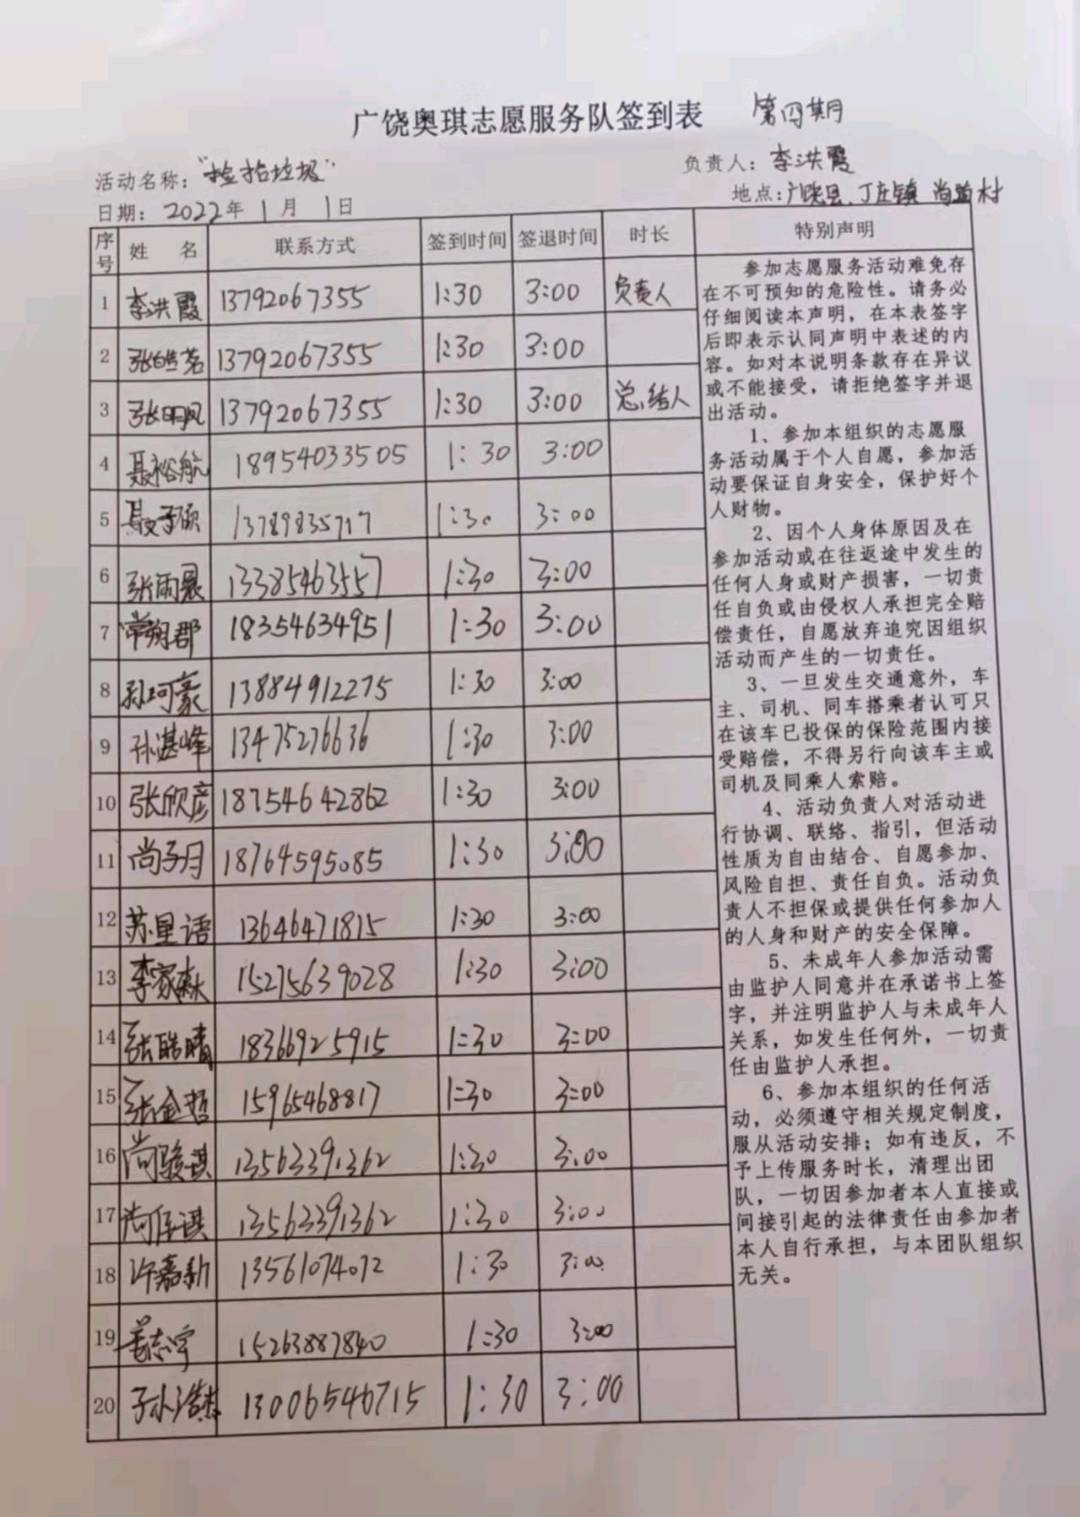 广饶奥琪志愿服务队签到表 第四期
活动名称："捡拾垃圾" 负责人：李洪霞
日期：2022年1月1日 地点：广饶县丁庄镇尚道村
序号 姓名 联系方式 签到时间 签退时间 时长 特别声明
1 李洪霞 13792067355 1:30 3:00 负责人
2 13792067355 1:30 3:00
3 张明凤 13792067355 1:30 3:00 总结人
4 聂裕航 18954033505 1:30 3:00
5 聂子硕 13789835717 1:30 3:00
6 张雨晨 13385463557 1:30 3:00
7 常朔郡 18354634951 1:30 3:00
8 孙珂豪 13884912275 1:30 3:00
9 孙湛峰 13475276636 1:30 3:00
10 张欣彦 18754642862 1:30 3:00
11 尚子月 18764595085 1:30 3:00
12 苏里语 13646471815 1:30 3:00
13 李家森 15275639028 1:30 3:00
14 张皓晴 18366925915 1:30 3:00
15 张金哲 15965468817 1:30 3:00
16 尚骏琪 13563391362 1:30 3:00
17 13563391362 1:30 3:00
18 许嘉新 13561074072 1:30 3:00
19 姜志宇 15263887840 1:30 3:00
20 孙浩杰 13006546715 1:30 3:00
参加志愿服务活动难免存
在不可预知的危险性。请务必
仔细阅读本声明，在本表签字
后即表示认同声明中表述的内
容。如对本说明条款存在异议
或不能接受，请拒绝签字并退
出活动。
1、参加本组织的志愿服
务活动属于个人自愿，参加活
动要保证自身安全，保护好个
人财物。
2、因个人身体原因及在
参加活动或在往返途中发生的
任何人身或财产损害，一切责
任自负或由侵权人承担完全赔
偿责任，自愿放弃追究因组织
活动而产生的一切责任。
3、一旦发生交通意外，车
主、司机、同车搭乘者认可只
在该车已投保的保险范围内接
受赔偿，不得另行向该车主或
司机及同乘人索赔。
4、活动负责人对活动进
行协调、联络、指引，但活动
性质为自由结合、自愿参加、
风险自担、责任自负。活动负
责人不担保或提供任何参加人
的人身和财产的安全保障。
5、未成年人参加活动需
由监护人同意并在承诺书上签
字，并注明监护人与未成年人
关系，如发生任何外，一切责
任由监护人承担。
6、参加本组织的任何活
动，必须遵守相关规定制度，
服从活动安排；如有违反，不
予上传服务时长，清理出团
队，一切因参加者本人直接或
间接引起的法律责任由参加者
本人自行承担，与本团队组织
无关。